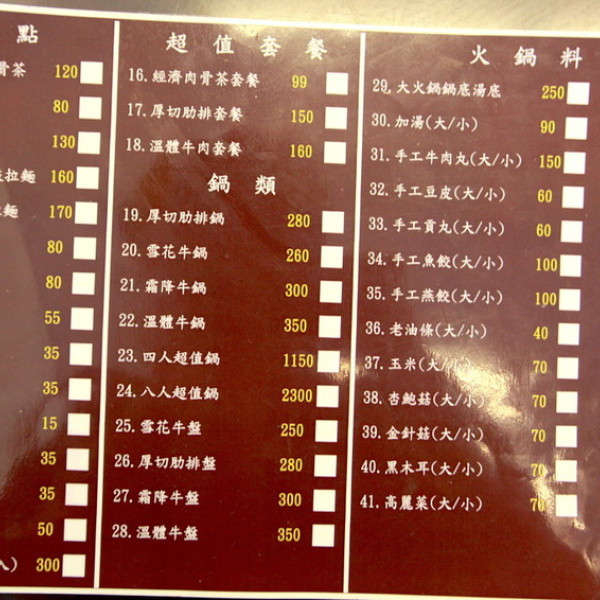 點
骨茶 120
80
130
拉麵 160
麵 170
80
80
55
35
35
15
35
35
50
人) 300
超值套餐
16.經濟肉骨茶套餐 99
17.厚切肋排套餐 150
18.溫體牛肉套餐 160
鍋類
19.厚切肋排鍋 280
20.雪花牛鍋 260
21.霜降牛鍋 300
22.溫體牛鍋 350
23.四人超值鍋 1150
24.八人超值鍋 2300
25.雪花牛盤 250
26.厚切肋排盤 280
27.霜降牛盤 300
28.溫體牛盤 350
火鍋料
29.大火鍋鍋底湯底 250
30.加湯(大/小) 90
31.手工牛肉丸(大/小) 150
32.手工豆皮(大/小) 60
33.手工貢丸(大/小) 60
34.手工魚餃(大/小) 100
35.手工燕餃(大/小) 100
36.老油條(大/小) 40
37.玉米(大/小) 70
38.杏鮑菇(大/小) 70
39.金針菇(大/小) 70
40.黑木耳(大/小) 70
41.高麗菜(大/小) 70